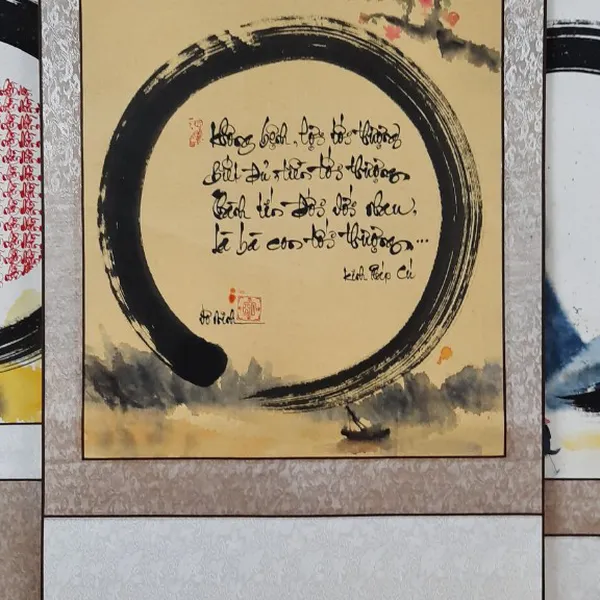 Không bệnh, lợi tối thượng
Biết đủ, tiền tối thượng
Thành tín đối với nhau,
Là bà con tối thượng...
Kinh Pháp Cú